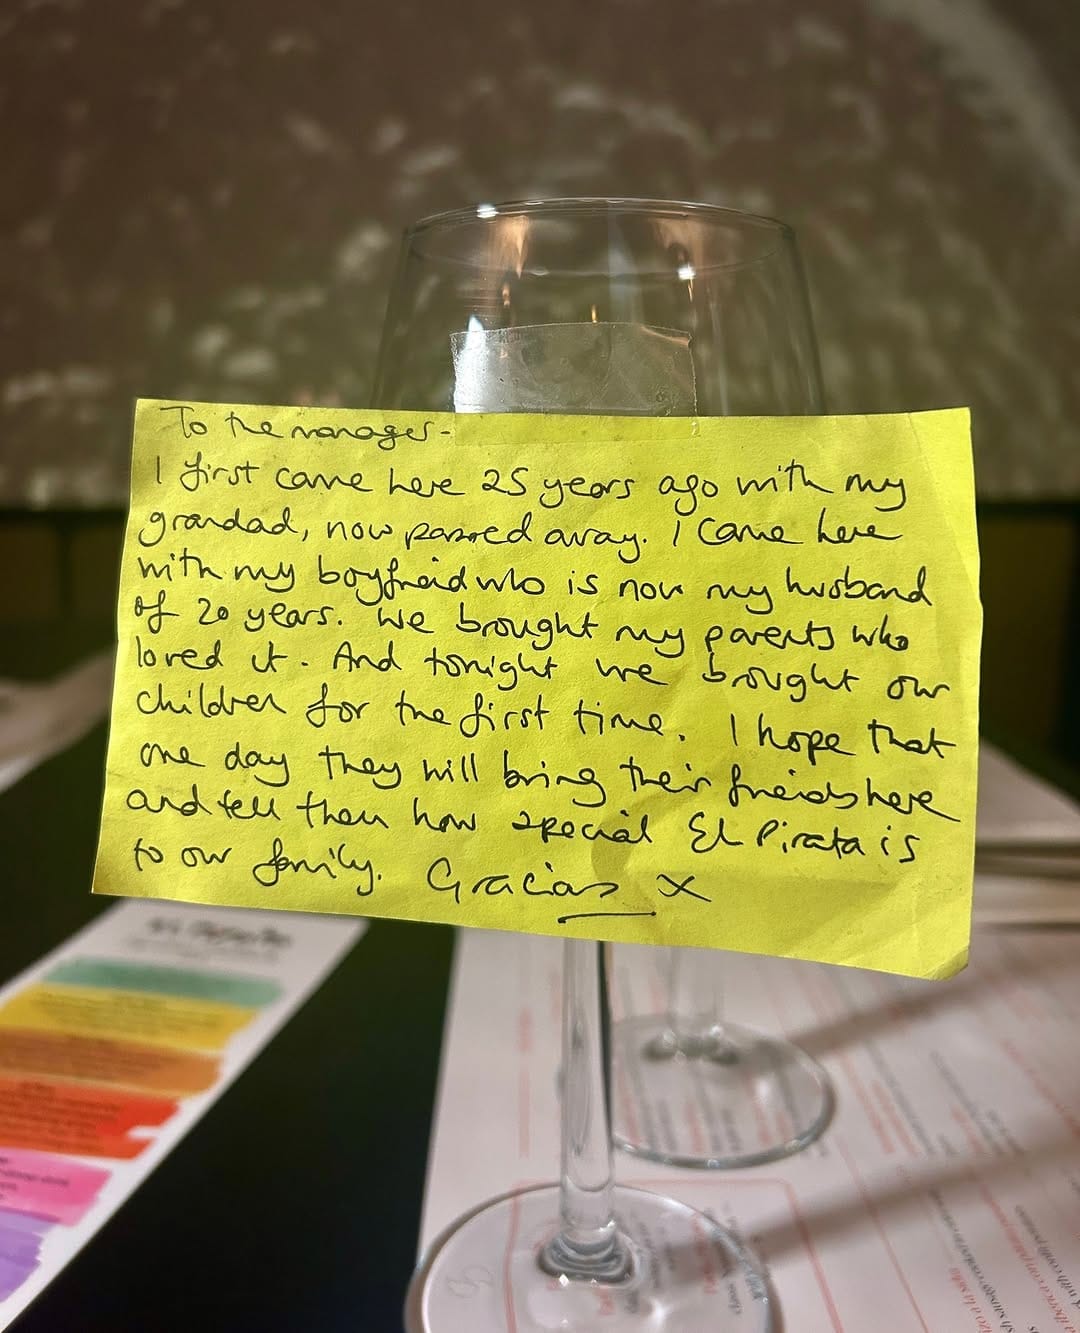 To the manager-
I first came here 25 years ago with my
grandad, now passed away. I came here
with my boyfreid who is now my husband
of 20 years. We brought my parents who
loved it. And tonight we brought our
children for the first time. I hope that
one day they will bring their freids here
and tell them how special El Pirata is
to our family. Gracias x